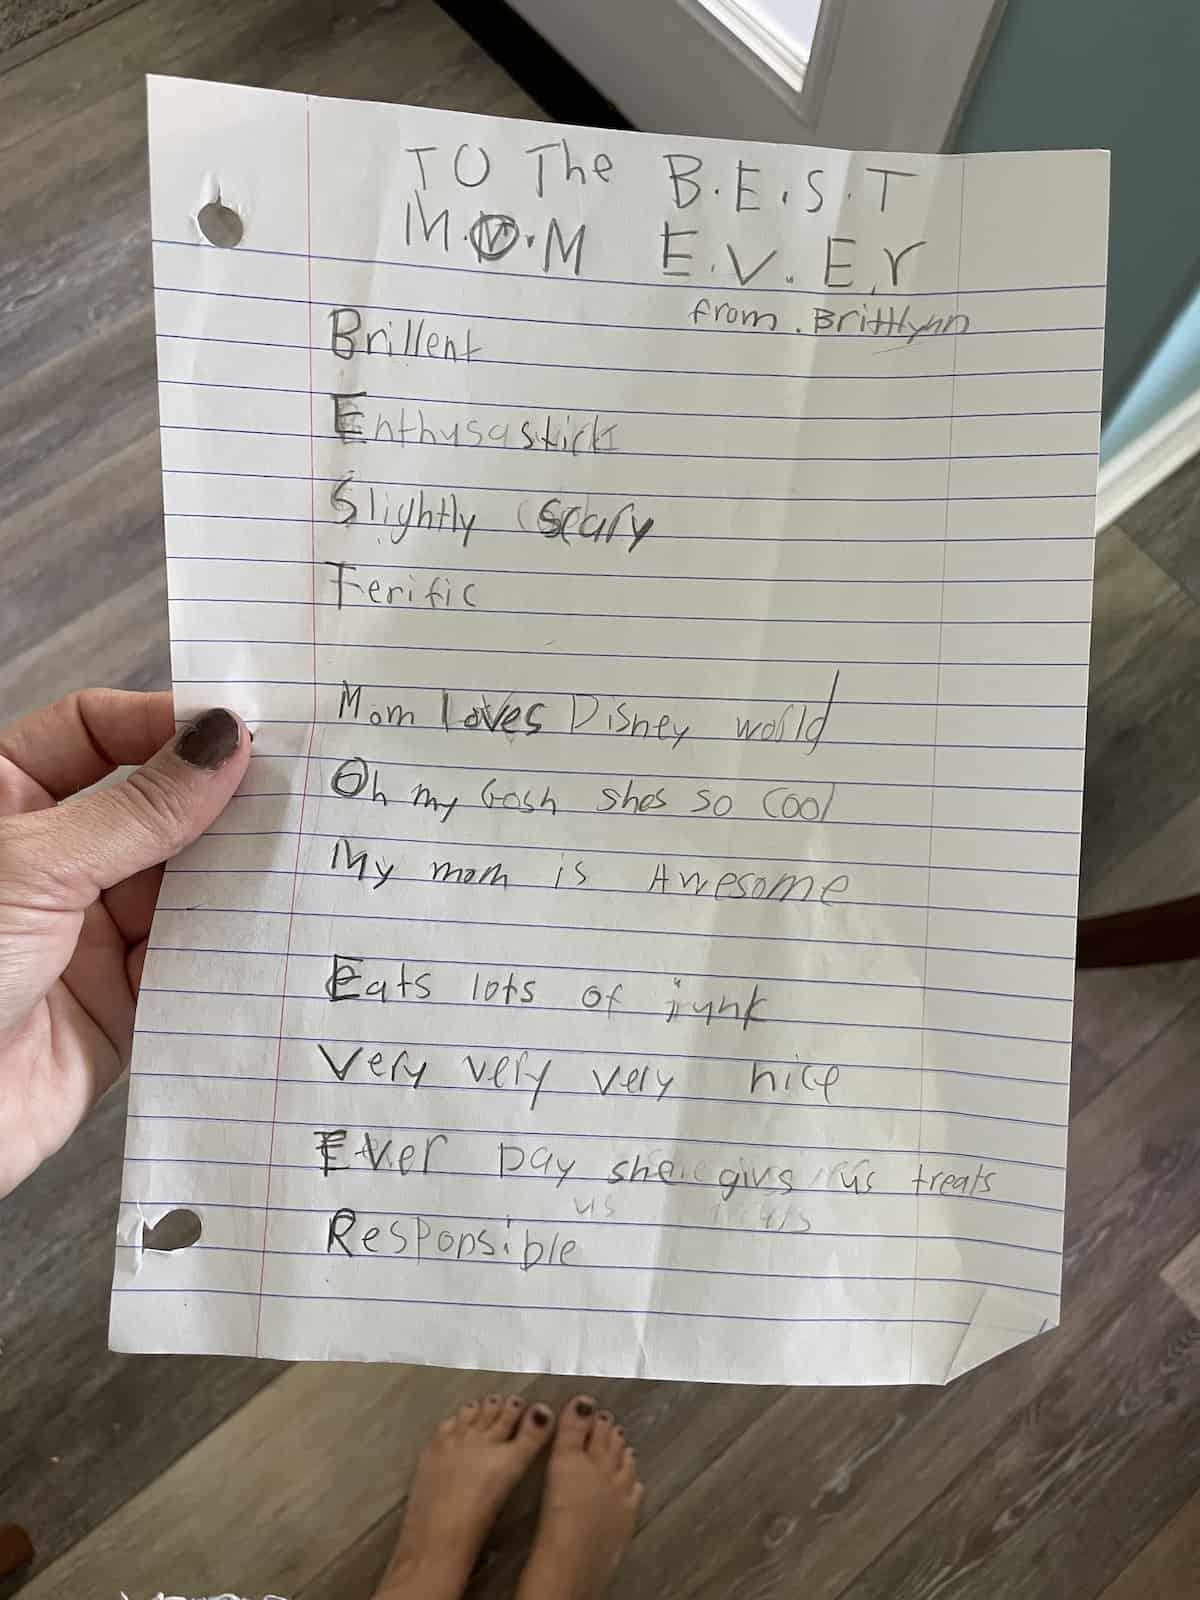 TO The B.E.S.T
M.O.M E.V.E.r
from. Brittlynn
Brillent
Enthusastick
Slightly scary
Terific
Mom loves Disney world
Oh my Gosh shes so cool
My mom is Awesome
Eats lots of junk
Very very very nice
Ever Day she givs us treats
us
Responsible